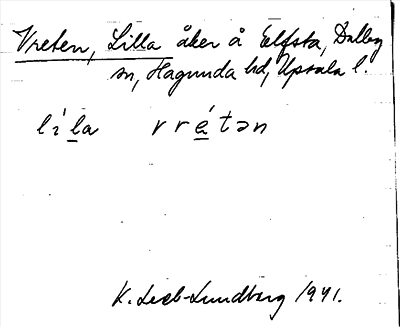 Vreten, Lilla åker å Elfsta, Dalby
sn, Hagunda hd, Upsala l.
lí̀la vré̱tən
K. Leeb-Lundberg 1941.